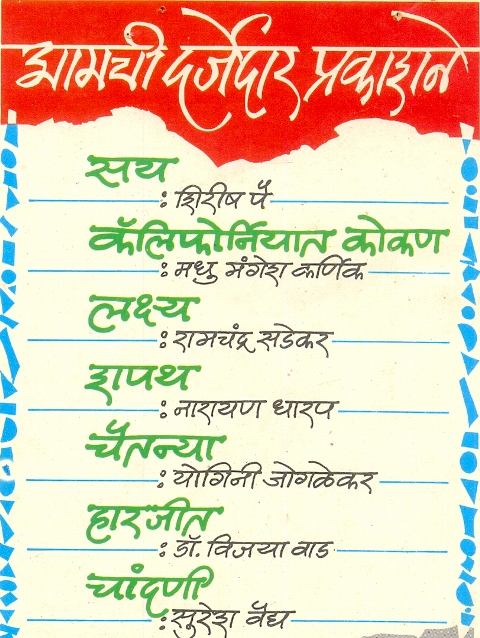 आमची दर्जेदार प्रकाशने
सय
: शिरीष पै
कॅलिफोर्नियात कोकण
: मधु मंगेश कर्णिक
लक्ष्य
: रामचंद्र सडेकर
शपथ
: नारायण धारप
चैतन्या
: योगिनी जोगळेकर
हारजीत
: डॉ. विजया वाड
चांदणी
: सुरेश वैद्य